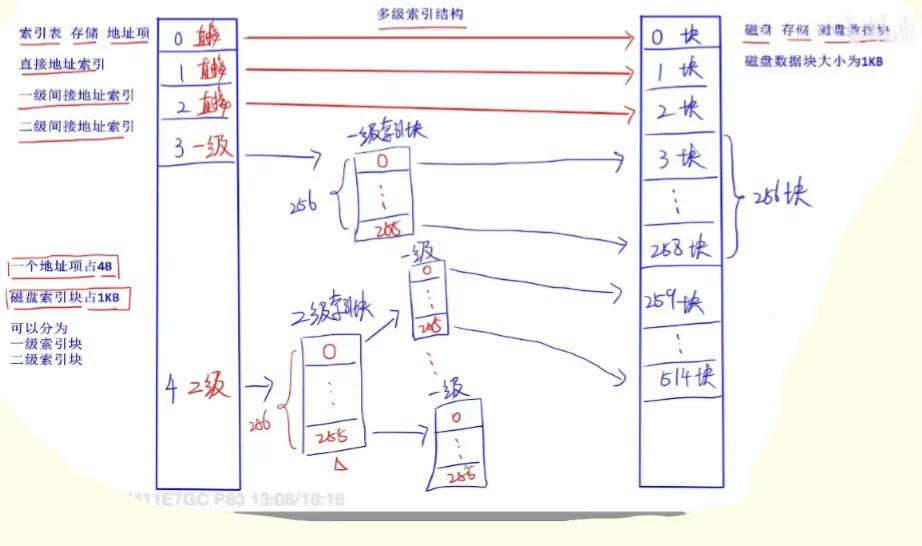 多级索引结构
索引表 存储 地址项
直接地址索引
一级间接地址索引
二级间接地址索引
一个地址项占4B
磁盘索引块占1KB
可以分为
一级索引块
二级索引块
0 直接
1 直接
2 直接
3 一级
4 二级
一级索引块
256
0
255
二级索引块
256
0
255
一级
0
255
一级
0
256
0 块
1 块
2 块
3 块
258 块
256 块
259 块
514 块
磁盘 存储 磁盘数据块
磁盘数据块大小为1KB
411E7GC P83 13:08/18:16